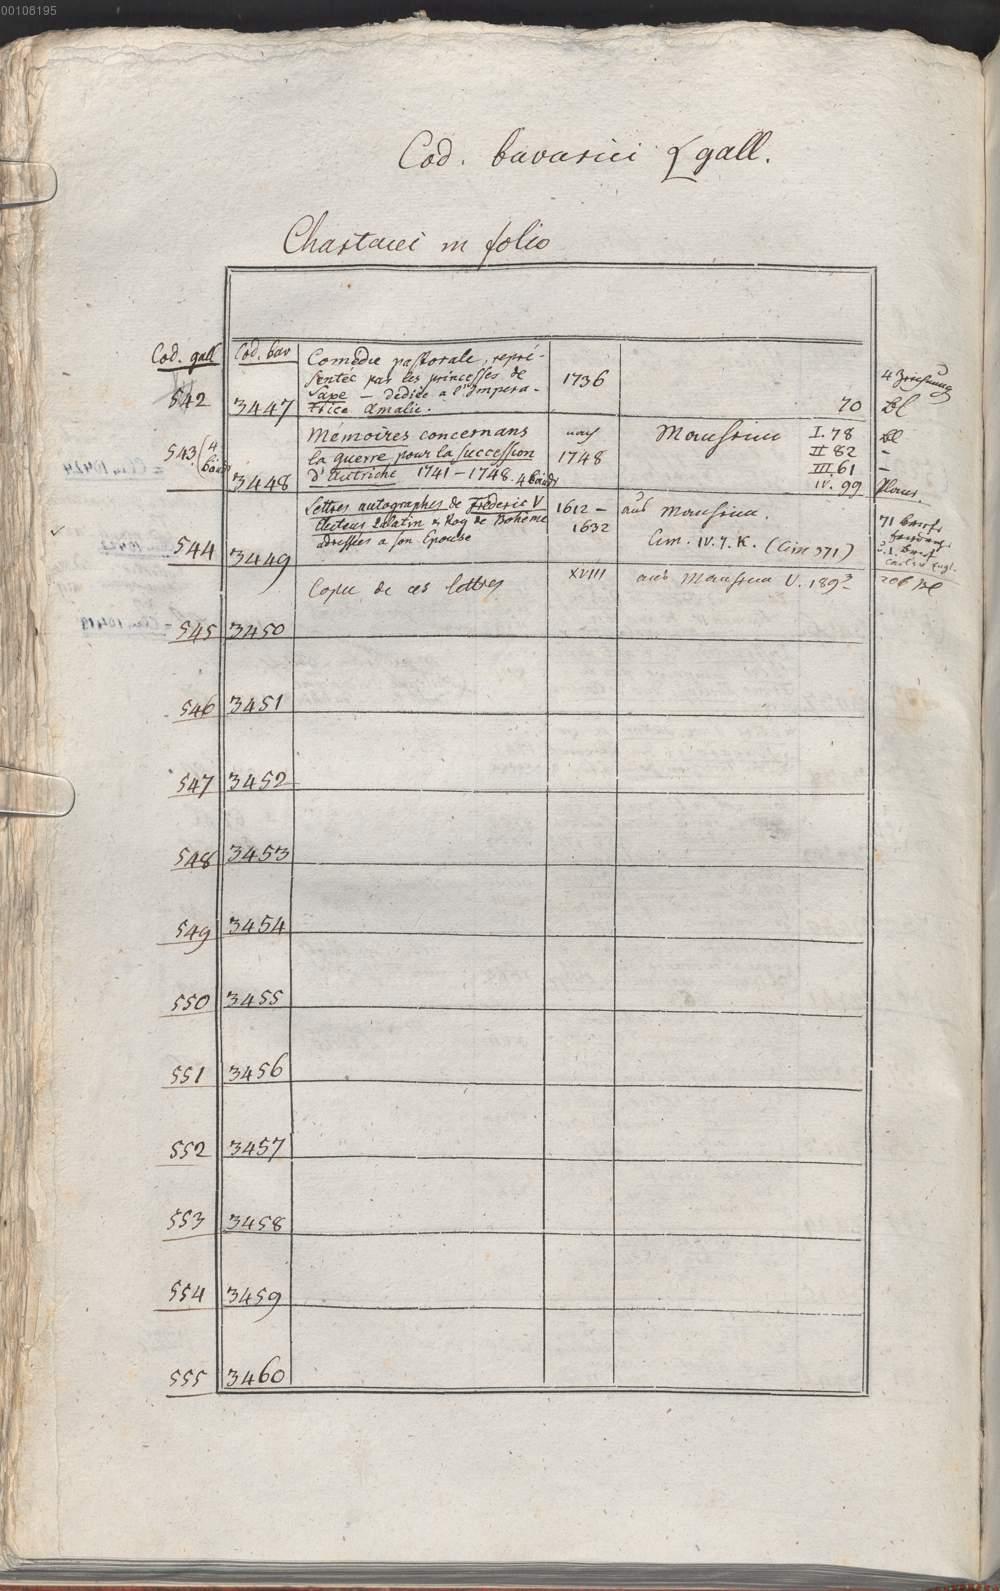 00108195
Cod. bavarici & gall.
Chartacei in folio
Cod. gall Cod. bav
542 3447 Comédie pastorale, repré-
sentée par les princesses de 1736
Saxe — dédiée a l'Impera-
trice Amalie. 70 Bl
4 Zeichnung
543 (4 Bände) 3448 Mémoires concernans nach Mansrium I. 78 Bl
la guerre pour la succession 1748 II 82 –
d'Autriche 1741–1748. 4 Bände III 61 –
IV. 99 Plans.
544 3449 Lettres autographes de Frederic V 1612– aus Mansrium.
Electeur Palatin & Roy de Bohème 1632
adressées a son Epouse Cim. IV. 7. K. (Cim 371)
71 Briefe
545 3450 Copie de ces lettres XVIII aus V. 189
206 Bl
546 3451
547 3452
548 3453
549 3454
550 3455
551 3456
552 3457
553 3458
554 3459
555 3460